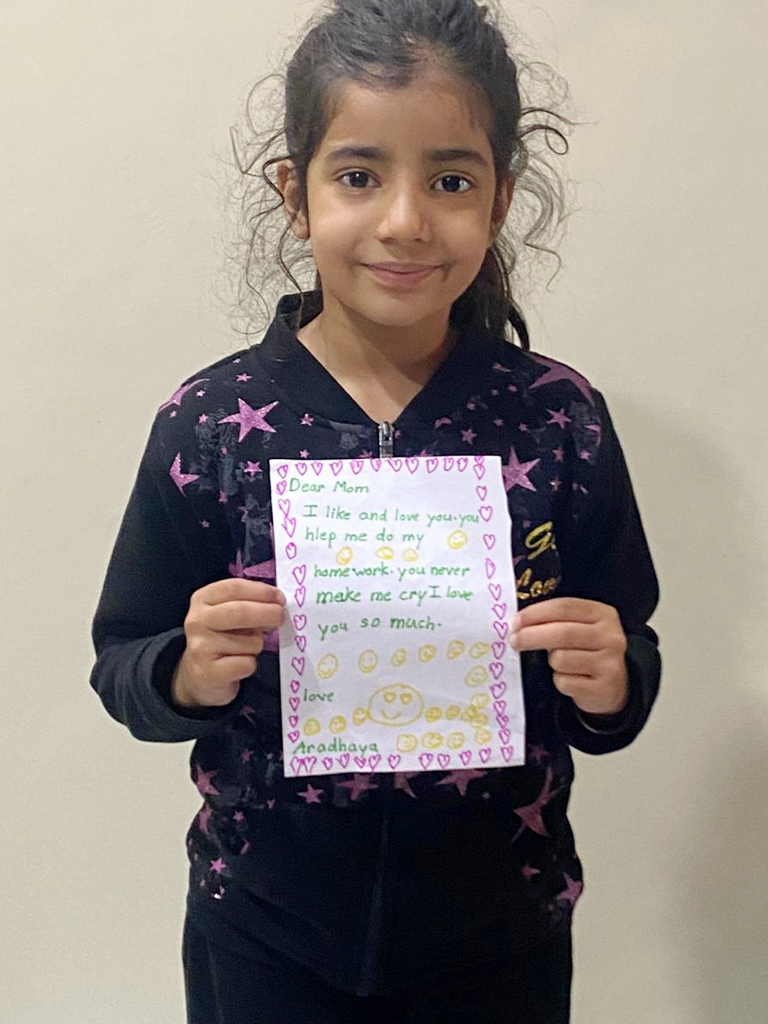 Dear Mom
I like and love you.you
hlep me do my
home work.you never
make me cry I love
you so much.
love
Aradhaya